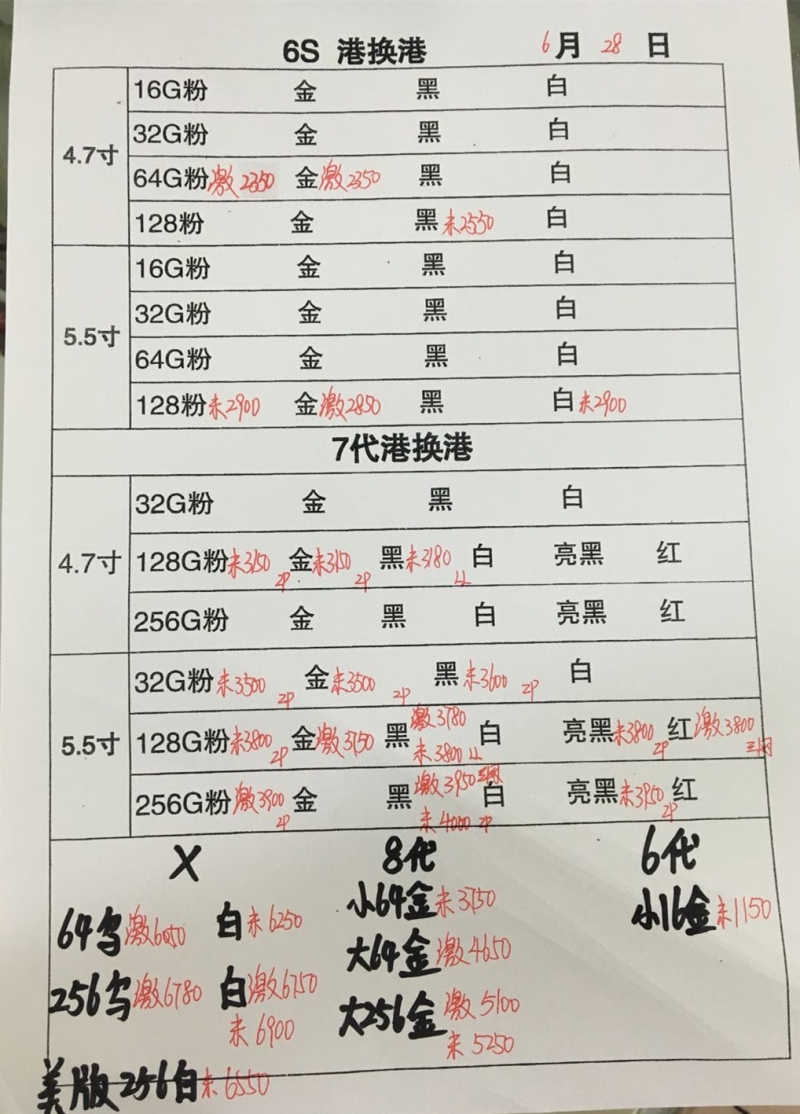 6S 港换港 6月28日
4.7寸
16G粉 金 黑 白
32G粉 金 黑 白
64G粉激2350 金激2350 黑 白
128粉 金 黑未2550 白
5.5寸
16G粉 金 黑 白
32G粉 金 黑 白
64G粉 金 黑 白
128粉未2900 金激2850 黑 白未2900
7代港换港
4.7寸
32G粉 金 黑 白
128G粉未3150 ZP 金未3150 ZP 黑未3180 LL 白 亮黑 红
256G粉 金 黑 白 亮黑 红
5.5寸
32G粉未3500 ZP 金未3500 ZP 黑未3600 ZP 白
128G粉未3800 ZP 金激3750 黑激3780 未3800 LL 白 亮黑未3800 ZP 红激3800 三网
256G粉激3900 ZP 金 黑激3950三网 未4000 ZP 白 亮黑未3950 ZP 红
X 8代 6代
64乌激6050 白未6250 小64金未3750 小16金未1150
大64金激4650
256乌激6780 白激6750 未6900 大256金激5100 未5250
美版256白未6550